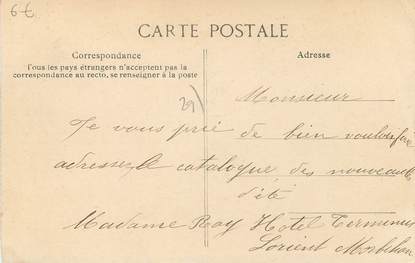 6€
CARTE POSTALE
Correspondance
Tous les pays étrangers n'acceptent pas la
correspondance au recto, se renseigner à la poste
Adresse
29)
Monsieur
Je vous prie de bien vouloir faire
adresser le catalogue des nouveautés
d'été
Madame Ray Hotel Terminus
Lorient Morbihan